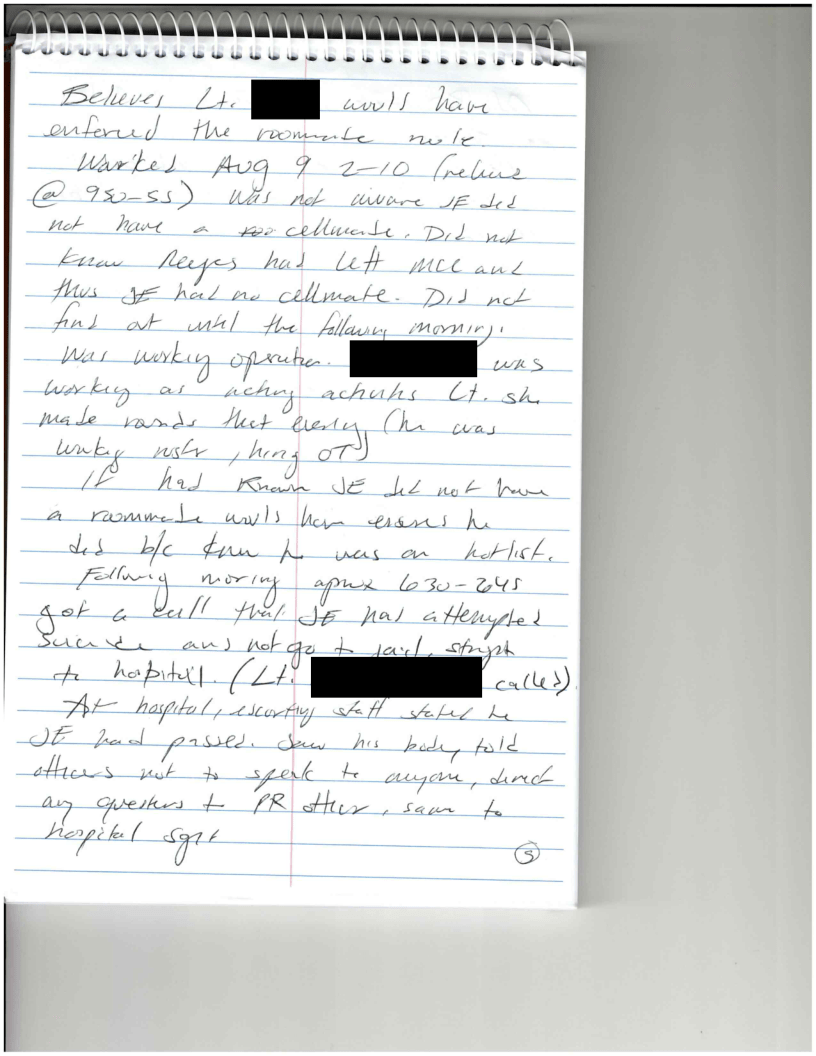 Believes Lt. would have
enforced the roommate rule.
Worked Aug 9 2-10 (relieve
@ 950-55) Was not aware JE did
not have a cellmate. Did not
know Reyes had left MCC and
thus JE had no cellmate. Did not
find out until the following morning.
Was working operation. was
working as acting Lt. she
made rounds that (he was
OT)
If had known JE did not have
a roommate would have he
did b/c knew he was on hotlist.
Following morning aprox 630-645
got a call that JE had attempted
suicide and not go to jail, straight
to hospital. (Lt. called).
At hospital, escorting staff stated he
JE had passed. Saw his body, told
officers not to speak to anyone, direct
any questions to PR officer, same to
hospital sgt
5